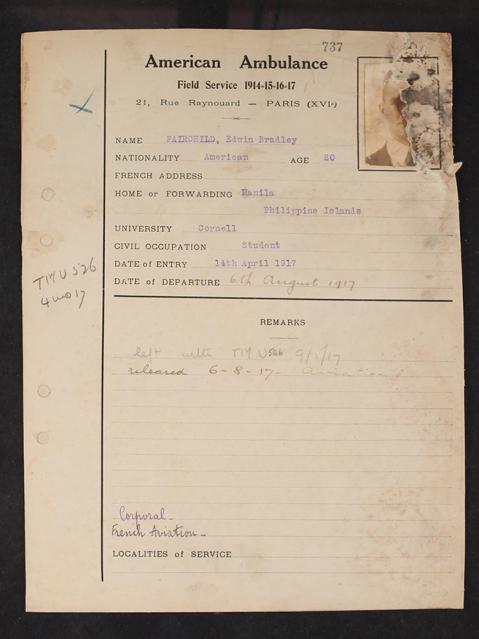 737
American Ambulance
Field Service 1914-15-16-17
21, Rue Raynouard — PARIS (XVIe)
NAME FAIRCHILD, Edwin Bradley
NATIONALITY American AGE 20
FRENCH ADDRESS
HOME or FORWARDING Manila
Philippine Islands
UNIVERSITY Cornell
CIVIL OCCUPATION Student
DATE of ENTRY 14th April 1917
DATE of DEPARTURE 6th August 1917
TMU 526
4 mo 17
REMARKS
left with TMU 526 9/5/17
released 6-8-17 - Aviation
Corporal -
French Aviation -
LOCALITIES of SERVICE